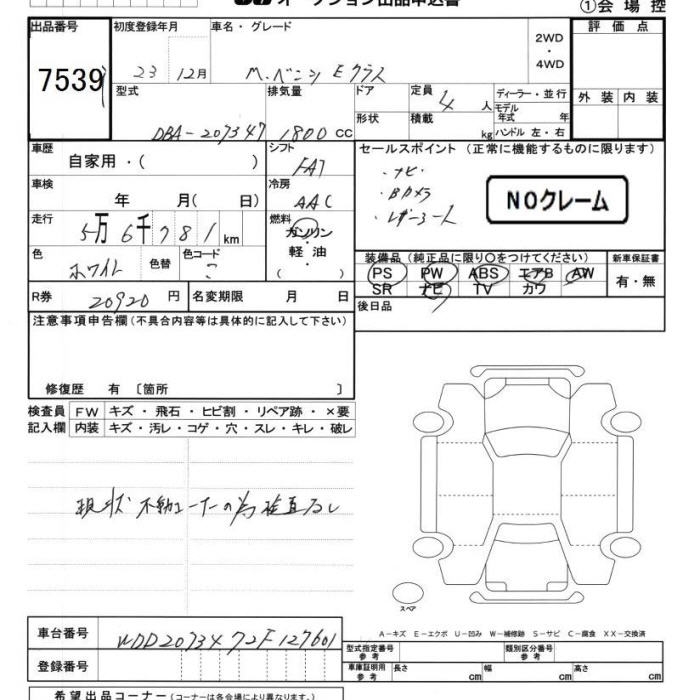 オークション出品申込書
①会場控
出品番号
7539
初度登録年月
23 12月
車名・グレード
M.ベンツ Eクラス
2WD
・
4WD
評価点
外装 内装
型式
DBA-207347
排気量
1800 cc
ドア
形状
定員
4人
積載
kg
ディーラー・並行
モデル年式 年
ハンドル 左・右
車歴
自家用・( )
シフト
FA7
セールスポイント(正常に機能するものに限ります)
・ナビ・
・Bカメラ
・レザーシート
NOクレーム
車検
年 月( 日)
冷房
AAC
走行
5万6千781km
燃料
ガソリン
・
軽油
・
( )
色
ホワイト
色替
色コード
?
装備品(純正品に限り○をつけてください)
PS PW ABS エアB AW
SR ナビ TV カワ
新車保証書
有・無
R券
20920円
名変期限 月 日
後日品
注意事項申告欄(不具合内容等は具体的に記入して下さい)
修復歴 有〔箇所 〕
検査員記入欄
FW キズ・飛石・ヒビ割・リペア跡・×要
内装 キズ・汚レ・コゲ・穴・スレ・キレ・破レ
現状 不動コーナーの為 検査なし
スペア
A-キズ E-エクボ U-凹み W-補修跡 S-サビ C-腐食 XX-交換済
車台番号
WDD2073472F127601
登録番号
型式指定番号 参考
類別区分番号 参考
車庫証明用 参考
長さ cm
幅 cm
高さ cm
希望出品コーナー(コーナーは各会場により異なります。)